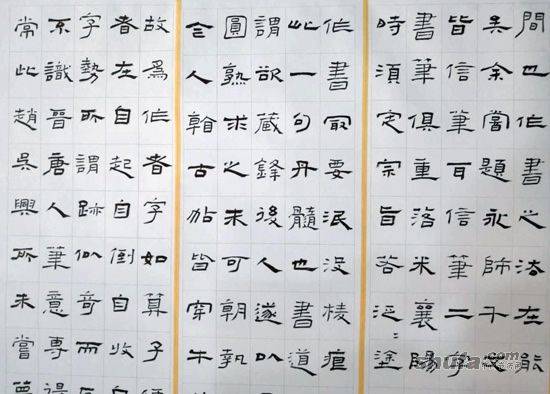 間也作書之法在能
矣余嘗題永師千文
皆信筆耳信筆二字
書筆俱重落米襄陽
時須定宗旨若泛泛塗
作書最要泯沒棱痕
此一句丹髓也書道
謂欲藏鋒後人遂以
圓熟求之未可朝執
仝人翰古帖皆穿午
故為作者字如算子
春在自起自倒自收自
字勢所謂跡似奇而反
不識晉唐人筆意專得
常此趙吳興所未嘗夢